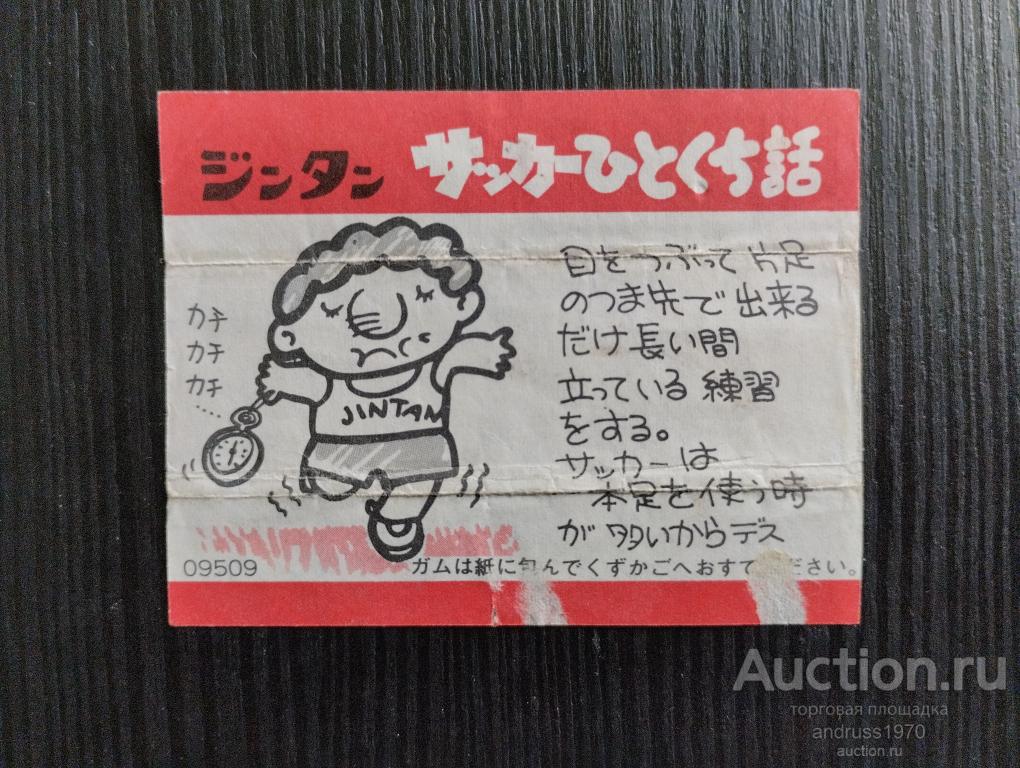 ジンタン サッカーひとくち話
カチ
カチ
カチ
……
JINTAN
目をつぶって片足
のつま先で出来る
だけ長い間
立っている練習
をする。
サッカーは
一本足を使う時
が多いからデス
09509
ガムは紙に包んでくずかごへおすてください。
Auction.ru
торговая площадка
andruss1970
auction.ru